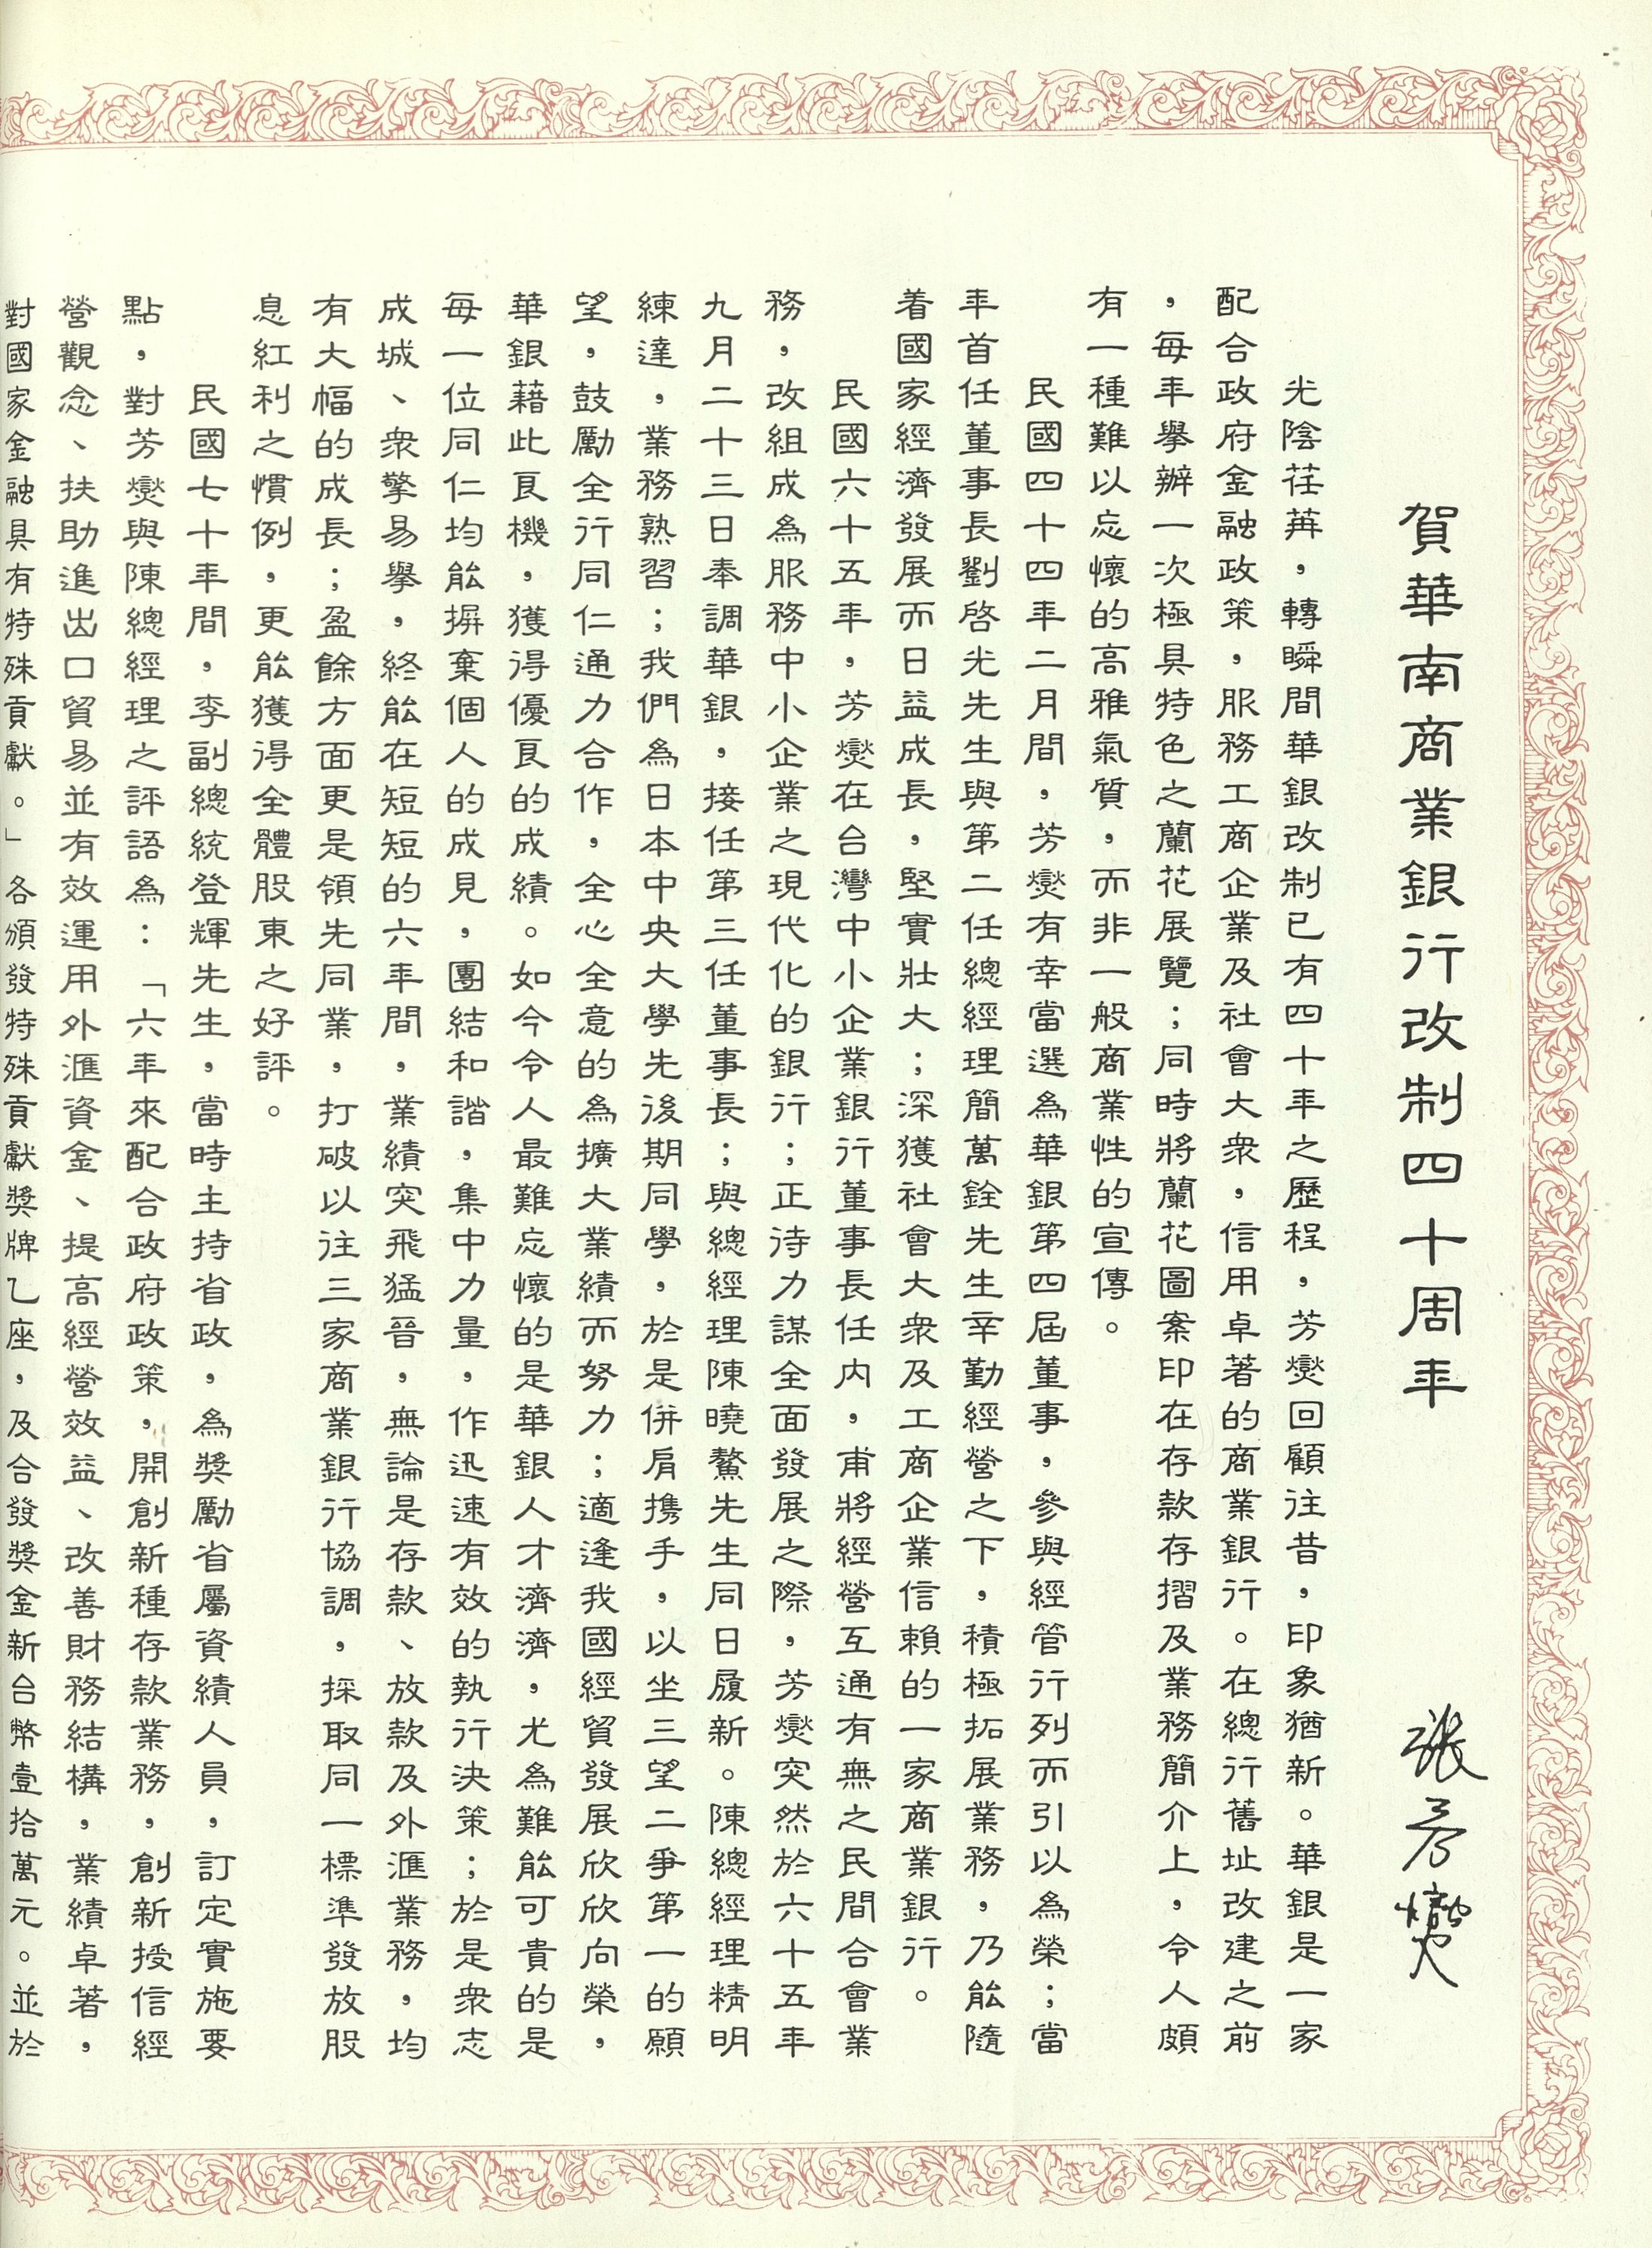 賀華南商業銀行改制四十周年
張芳燮
光陰荏苒，轉瞬間華銀改制已有四十年之歷程，芳燮回顧往昔，印象猶新。華銀是一家
配合政府金融政策，服務工商企業及社會大衆，信用卓著的商業銀行。在總行舊址改建之前
，每年舉辦一次極具特色之蘭花展覽；同時將蘭花圖案印在存款存摺及業務簡介上，令人頗
有一種難以忘懷的高雅氣質，而非一般商業性的宣傳。
民國四十四年二月間，芳燮有幸當選為華銀第四屆董事，參與經管行列而引以為榮；當
年首任董事長劉啓光先生與第二任總經理簡萬銓先生辛勤經營之下，積極拓展業務，乃能隨
着國家經濟發展而日益成長，堅實壯大；深獲社會大衆及工商企業信賴的一家商業銀行。
民國六十五年，芳燮在台灣中小企業銀行董事長任內，甫將經營互通有無之民間合會業
務，改組成為服務中小企業之現代化的銀行；正待力謀全面發展之際，芳燮突然於六十五年
九月二十三日奉調華銀，接任第三任董事長；與總經理陳曉鰲先生同日履新。陳總經理精明
練達，業務熟習；我們為日本中央大學先後期同學，於是併肩携手，以坐三望二爭第一的願
望，鼓勵全行同仁通力合作，全心全意的為擴大業績而努力；適逢我國經貿發展欣欣向榮，
華銀藉此良機，獲得優良的成績。如今令人最難忘懷的是華銀人才濟濟，尤為難能可貴的是
每一位同仁均能摒棄個人的成見，團結和諧，集中力量，作迅速有效的執行決策；於是衆志
成城、衆擎易舉，終能在短短的六年間，業績突飛猛晉，無論是存款、放款及外滙業務，均
有大幅的成長；盈餘方面更是領先同業，打破以往三家商業銀行協調，採取同一標準發放股
息紅利之慣例，更能獲得全體股東之好評。
民國七十年間，李副總統登輝先生，當時主持省政，為獎勵省屬資績人員，訂定實施要
點，對芳燮與陳總經理之評語為：「六年來配合政府政策，開創新種存款業務，創新授信經
營觀念、扶助進出口貿易並有效運用外滙資金、提高經營效益、改善財務結構，業績卓著，
對國家金融具有特殊貢獻。」各頒發特殊貢獻獎牌乙座，及合發獎金新台幣壹拾萬元。並於